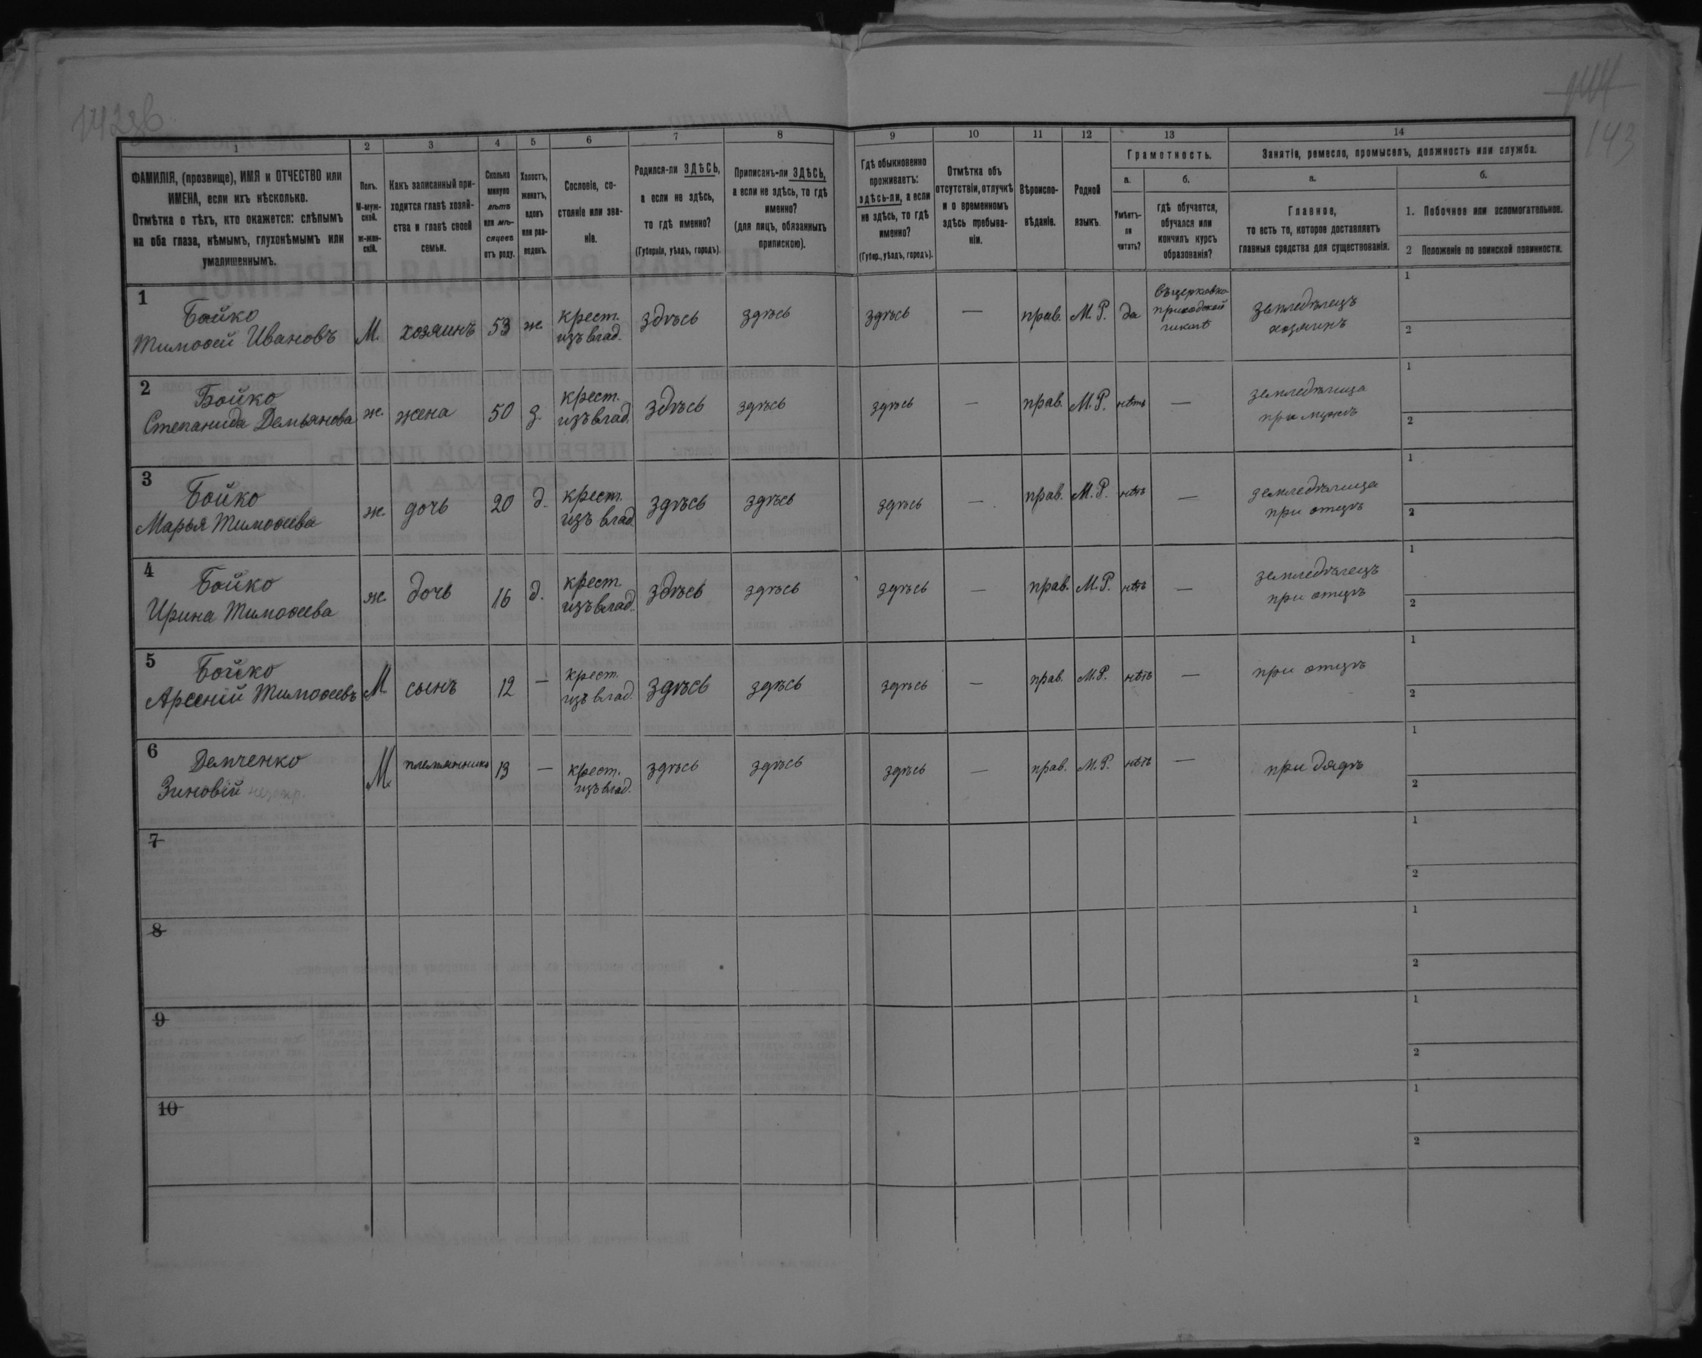 142зв
144
143
1
2
3
4
5
6
7
8
9
10
11
12
13
14
ФАМИЛІЯ, (прозвище), ИМЯ и ОТЧЕСТВО или
ИМЕНА, если ихъ нѣсколько.
Отмѣтка о тѣхъ, кто окажется: слѣпымъ
на оба глаза, нѣмымъ, глухонѣмымъ или
умалишеннымъ.
Полъ.
М-муж-
ской.
ж-жен-
скій.
Какъ записанный при-
ходится главѣ хозяй-
ства и главѣ своей
семьи.
Сколько
минуло
лѣтъ
или мѣ-
сяцевъ
отъ роду.
Холостъ,
женатъ,
вдовъ
или раз-
веденъ.
Сословіе, со-
стояніе или зва-
ніе.
Родился-ли ЗДѢСЬ,
а если не здѣсь,
то гдѣ именно?
(Губернія, уѣздъ, городъ).
Приписанъ-ли ЗДѢСЬ,
а если не здѣсь, то гдѣ
именно?
(для лицъ, обязанныхъ
припискою).
Гдѣ обыкновенно
проживаетъ:
здѣсь-ли, а если
не здѣсь, то гдѣ
именно?
(Губер., уѣздъ, городъ).
Отмѣтка объ
отсутствіи, отлучкѣ
и о временномъ
здѣсь пребыва-
ніи.
Вѣроиспо-
вѣданіе.
Родной
языкъ.
Грамотность.
а.
б.
Умѣетъ-
ли
читать?
гдѣ обучается,
обучался или
кончилъ курсъ
образованія?
Занятіе, ремесло, промыселъ, должность или служба.
а.
б.
Главное,
то есть то, которое доставляетъ
главныя средства для существованія.
1. Побочное или вспомогательное.
2 Положеніе по воинской повинности.
1
Бойко
Тимоѳей Ивановъ М. хозяинъ 53 ж. крест. изъ влад. здѣсь здѣсь здѣсь — прав. М.Р. да въ церковно приходской школѣ земледѣлецъ хозяинъ
1
2
2
Бойко
Степанида Демьянова ж. жена 50 з. крест. изъ влад. здѣсь здѣсь здѣсь — прав. М.Р. нѣтъ — земледѣлица при мужѣ
1
2
3
Бойко
Марья Тимоѳеева ж. дочь 20 д. крест. изъ влад. здѣсь здѣсь здѣсь — прав. М.Р. нѣтъ — земледѣлица при отцѣ
1
2
4
Бойко
Ирина Тимоѳеева ж. дочь 16 д. крест. изъ влад. здѣсь здѣсь здѣсь — прав. М.Р. нѣтъ — земледѣлецъ при отцѣ
1
2
5
Бойко
Арсеній Тимоѳеевъ М сынъ 12 — крест. изъ влад. здѣсь здѣсь здѣсь — прав. М.Р. нѣтъ — при отцѣ
1
2
6
Демченко
Зиновій М. племянникъ 13 — крест. изъ влад. здѣсь здѣсь здѣсь — прав. М.Р. нѣтъ — при дядѣ
1
2
7
1
2
8
1
2
9
1
2
10
1
2